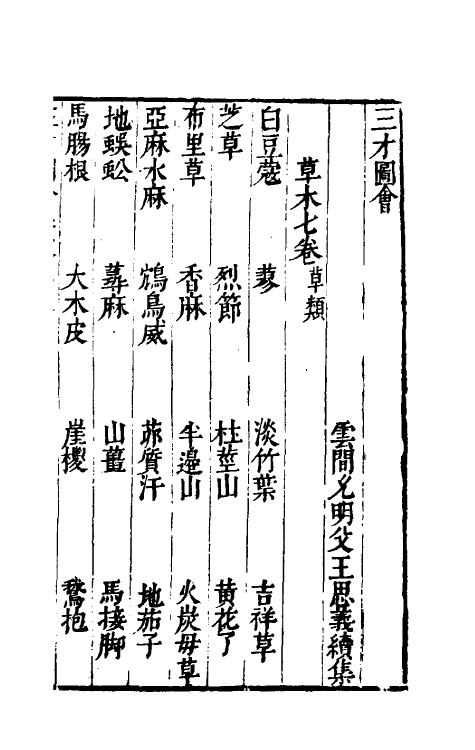 三才圖會
雲間允明父王思義續集
草木七卷 草類
白豆蔻 蓼 淡竹葉 吉祥草
芝草 烈節 杜莖山 黃花了
布里草 香麻 半邉山 火炭母草
亞麻水麻 鴆鳥威 茆質汗 地茄子
地蜈蚣 蕁麻 山薑 馬接脚
馬腸根 大木皮 崖椶 鵞抱